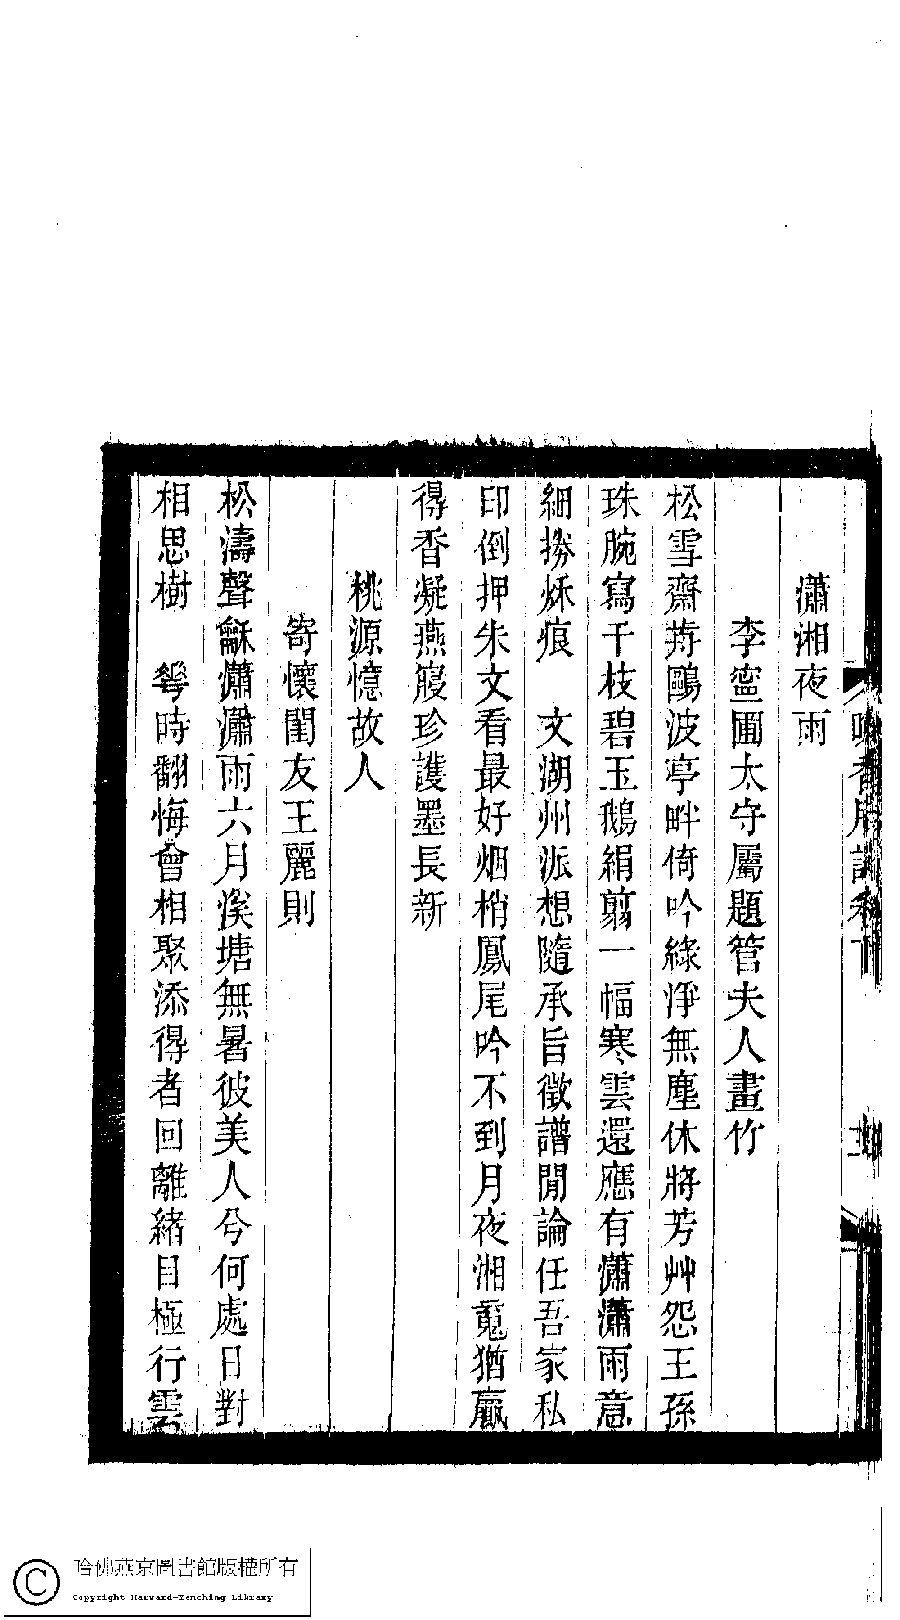 瀟湘夜雨
李寍圃太守屬題管夫人畫竹
松雪齋歬鷗波亭畔倚吟綠淨無塵休將芳艸怨王孫
珠腕寫千枝碧玉鵝絹翦一幅寒雲還應有瀟瀟雨意
細撈烁痕　文湖州派想隨承旨徵譜閒論任吾家私
印倒押朱文看最好烟梢鳳尾吟不到月夜湘䰟猶贏
得香凝燕寢珍護墨長新
桃源憶故人
寄懷閨友王麗則
松濤聲龢瀟瀟雨六月溪塘無暑彼美人兮何處日對
相思樹　䔢時翻悔會相聚添得者回離緒目極行雲
哈佛燕京圖書館版權所有
Copyright Harvard-Yenching Library